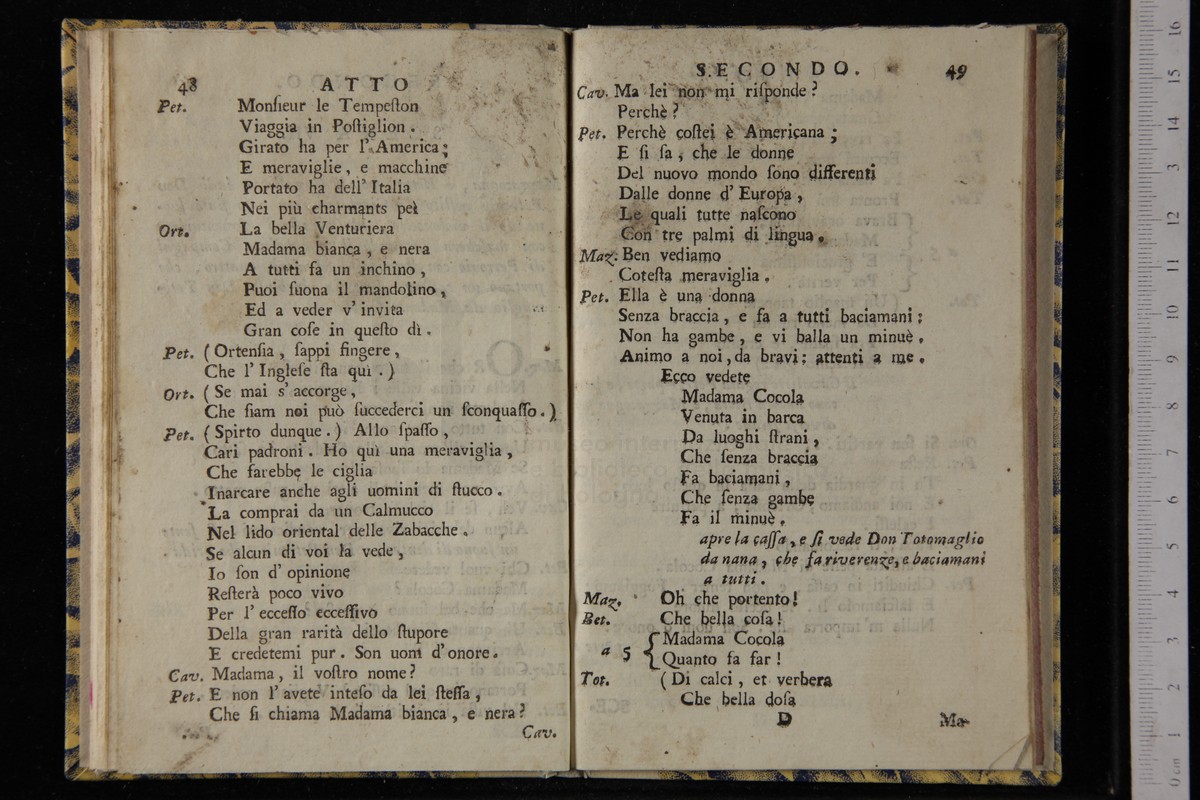 48 ATTO
Pet. Monſieur le Tempeſton
Viaggia in Poſtiglion.
Girato ha per l'America;
E meraviglie, e macchine
Portato ha dell' Italia
Nei più charmants peì
Ort. La bella Venturiera
Madama bianca, e nera
A tutti fa un inchino,
Puoi ſuona il mandolino,
Ed a veder v' invita
Gran coſe in queſto dì.
Pet. (Ortenſia, ſappi fingere,
Che l' Ingleſe ſta quì.)
Ort. (Se mai s' accorge,
Che ſiam noi può ſuccederci un ſconquaſſo.)
Pet. (Spirto dunque.) Allo ſpaſſo,
Cari padroni. Ho quì una meraviglia,
Che farebbe le ciglia
Inarcare anche agli uomini di ſtucco.
La comprai da un Calmucco
Nel lido oriental delle Zabacche.
Se alcun di voi la vede,
Io ſon d' opinione
Reſterà poco vivo
Per l' ecceſſo ecceſſivo
Della gran rarità dello ſtupore
E credetemi pur. Son uom d'onore.
Cav. Madama, il voſtro nome?
Pet. E non l' avete inteſo da lei ſteſſa,
Che ſi chiama Madama bianca, e nera?
Cav.
SECONDO. 49
Cav. Ma lei non mi riſponde?
Perchè?
Pet. Perchè coſtei è Americana;
E ſi ſa, che le donne
Del nuovo mondo ſono differenti
Dalle donne d' Europa,
Le quali tutte naſcono
Con tre palmi di lingua.
Maz. Ben vediamo
Coteſta meraviglia.
Pet. Ella è una donna
Senza braccia, e fa a tutti baciamani;
Non ha gambe, e vi balla un minuè.
Animo a noi, da bravi; attenti a me.
Ecco vedete
Madama Cocola
Venuta in barca
Da luoghi ſtrani,
Che ſenza braccia
Fa baciamani,
Che ſenza gambe
Fa il minuè.
apre la caſſa, e ſi vede Don Totomaglio
da nana, che fa riverenze, e baciamani
a tutti.
Maz. Oh che portento!
Bet. Che bella coſa!
a 5 {Madama Cocola
Quanto fa far!
Tot. (Di calci, et verbera
Che bella doſa
D Ma-